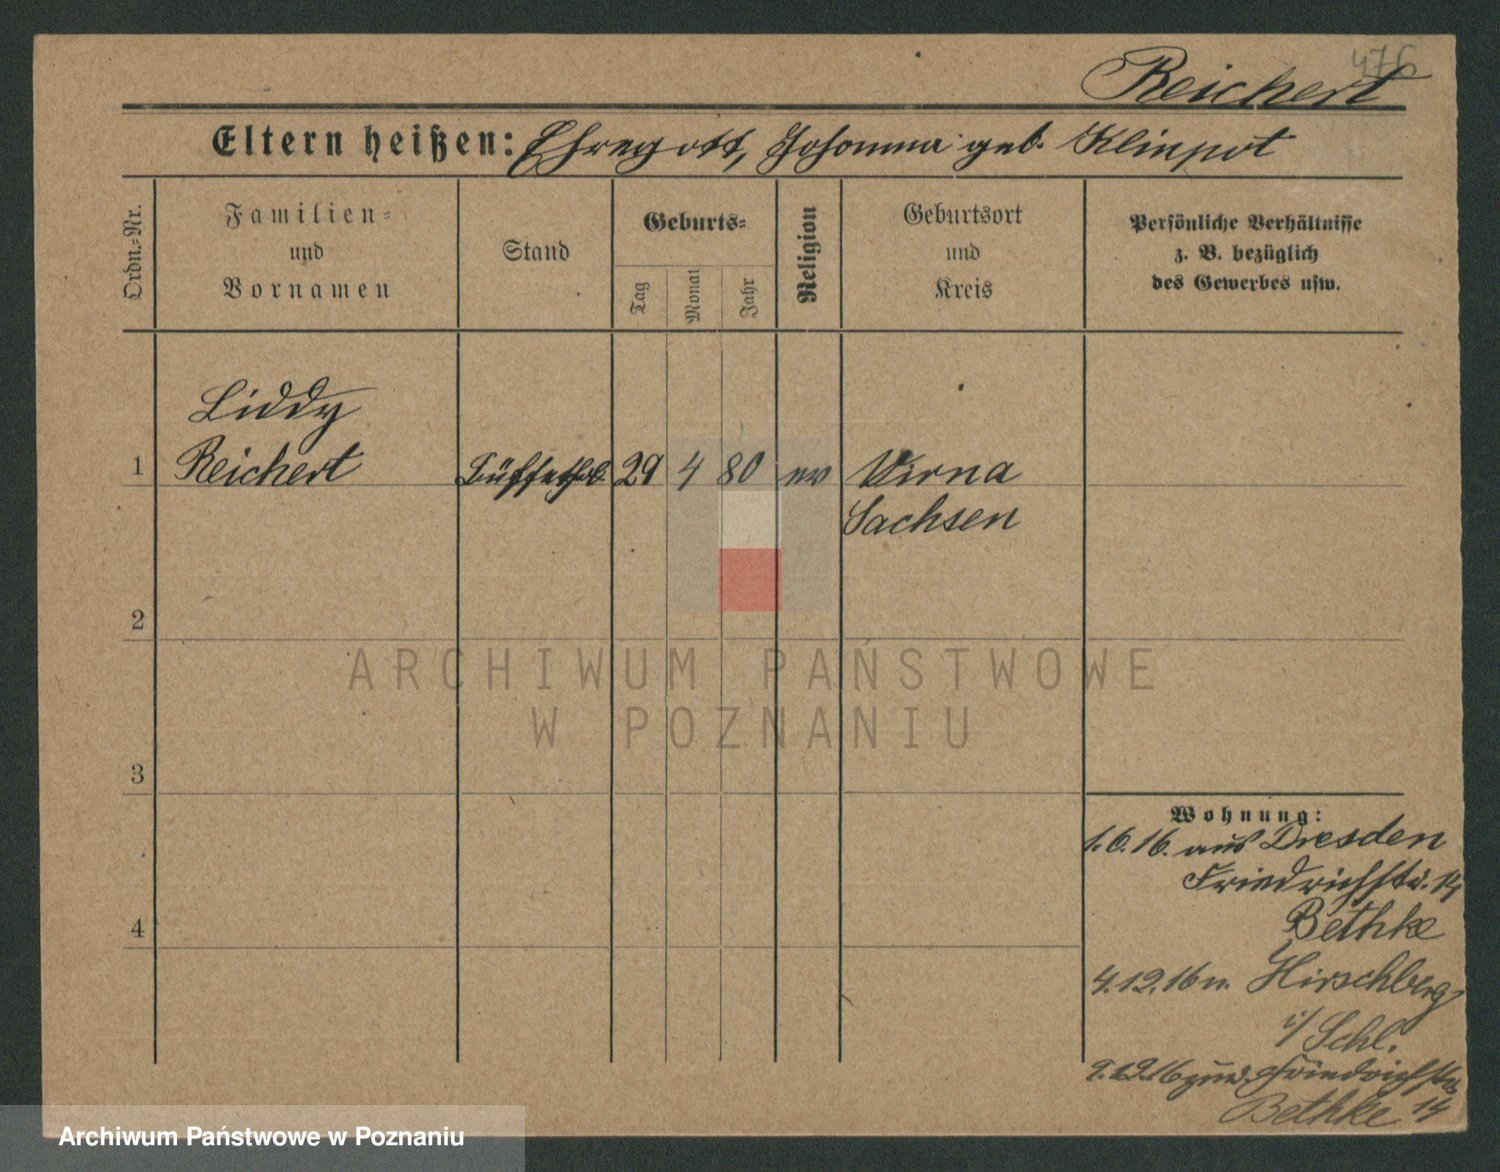 476
Reichert
Eltern heißen: Ehregott, Johanna geb. Klinpot
Ordn.-Nr.
Familien-
und
Vornamen
Stand
Geburts-
Tag
Monat
Jahr
Religion
Geburtsort
und
Kreis
Persönliche Verhältnisse
z. B. bezüglich
des Gewerbes usw.
Liddy
1 Reichert 29 4 80 ev Pirna
Sachsen
2
ARCHIWUM PAŃSTWOWE
W POZNANIU
3
Wohnung:
1.6.16. aus Dresden
Friedrichstr. 14
Bethke
4
4.12.16 n. Hirschberg
i/Schl.
9.12.16 zur. Friedrichstr.
Bethke 14
Archiwum Państwowe w Poznaniu